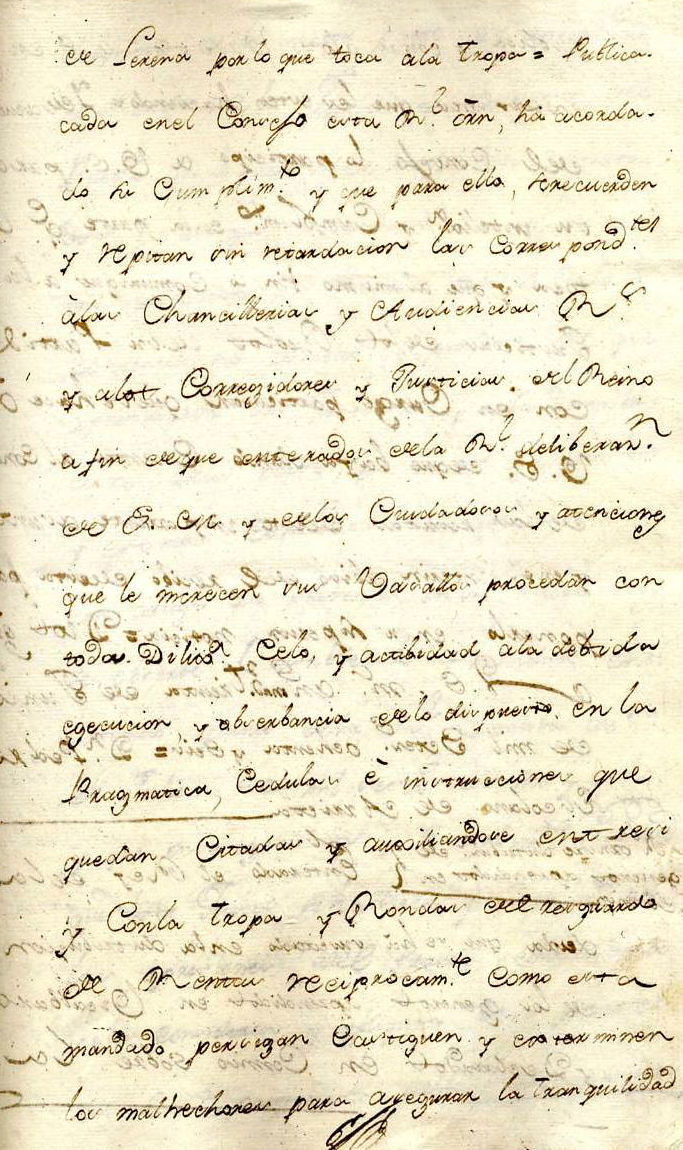 de Lerena por lo que toca ala tropa = Publica-
cada enel Consejo esta Rl. orn, ha acorda-
do su Cumplimto. y que para ello, se recuerden
y repitan sin retardacion las Correspondtes.
àlas Chancillerias y Audiencias Rs.
y alos Corregidores y Justicias del Reino
a fin de que enterados dela Rl. deliberazn.
de S. M y delos Cuidados y atenciones
que le merecen sus Vasallos procedan con
toda Diliga. Celo, y actibidad ala debida
egecucion, y obserbancia delo dispuesto en la
Pragmatica, Cedulas è instrucciones que
quedan Citadas y auxiliandose entre si
y Conla tropa y Rondas del resguardo
de Rentas reciprocamte. como esta
mandado persigan Castiguen y exterminen
los malhechores para asegurar la tranquilidad